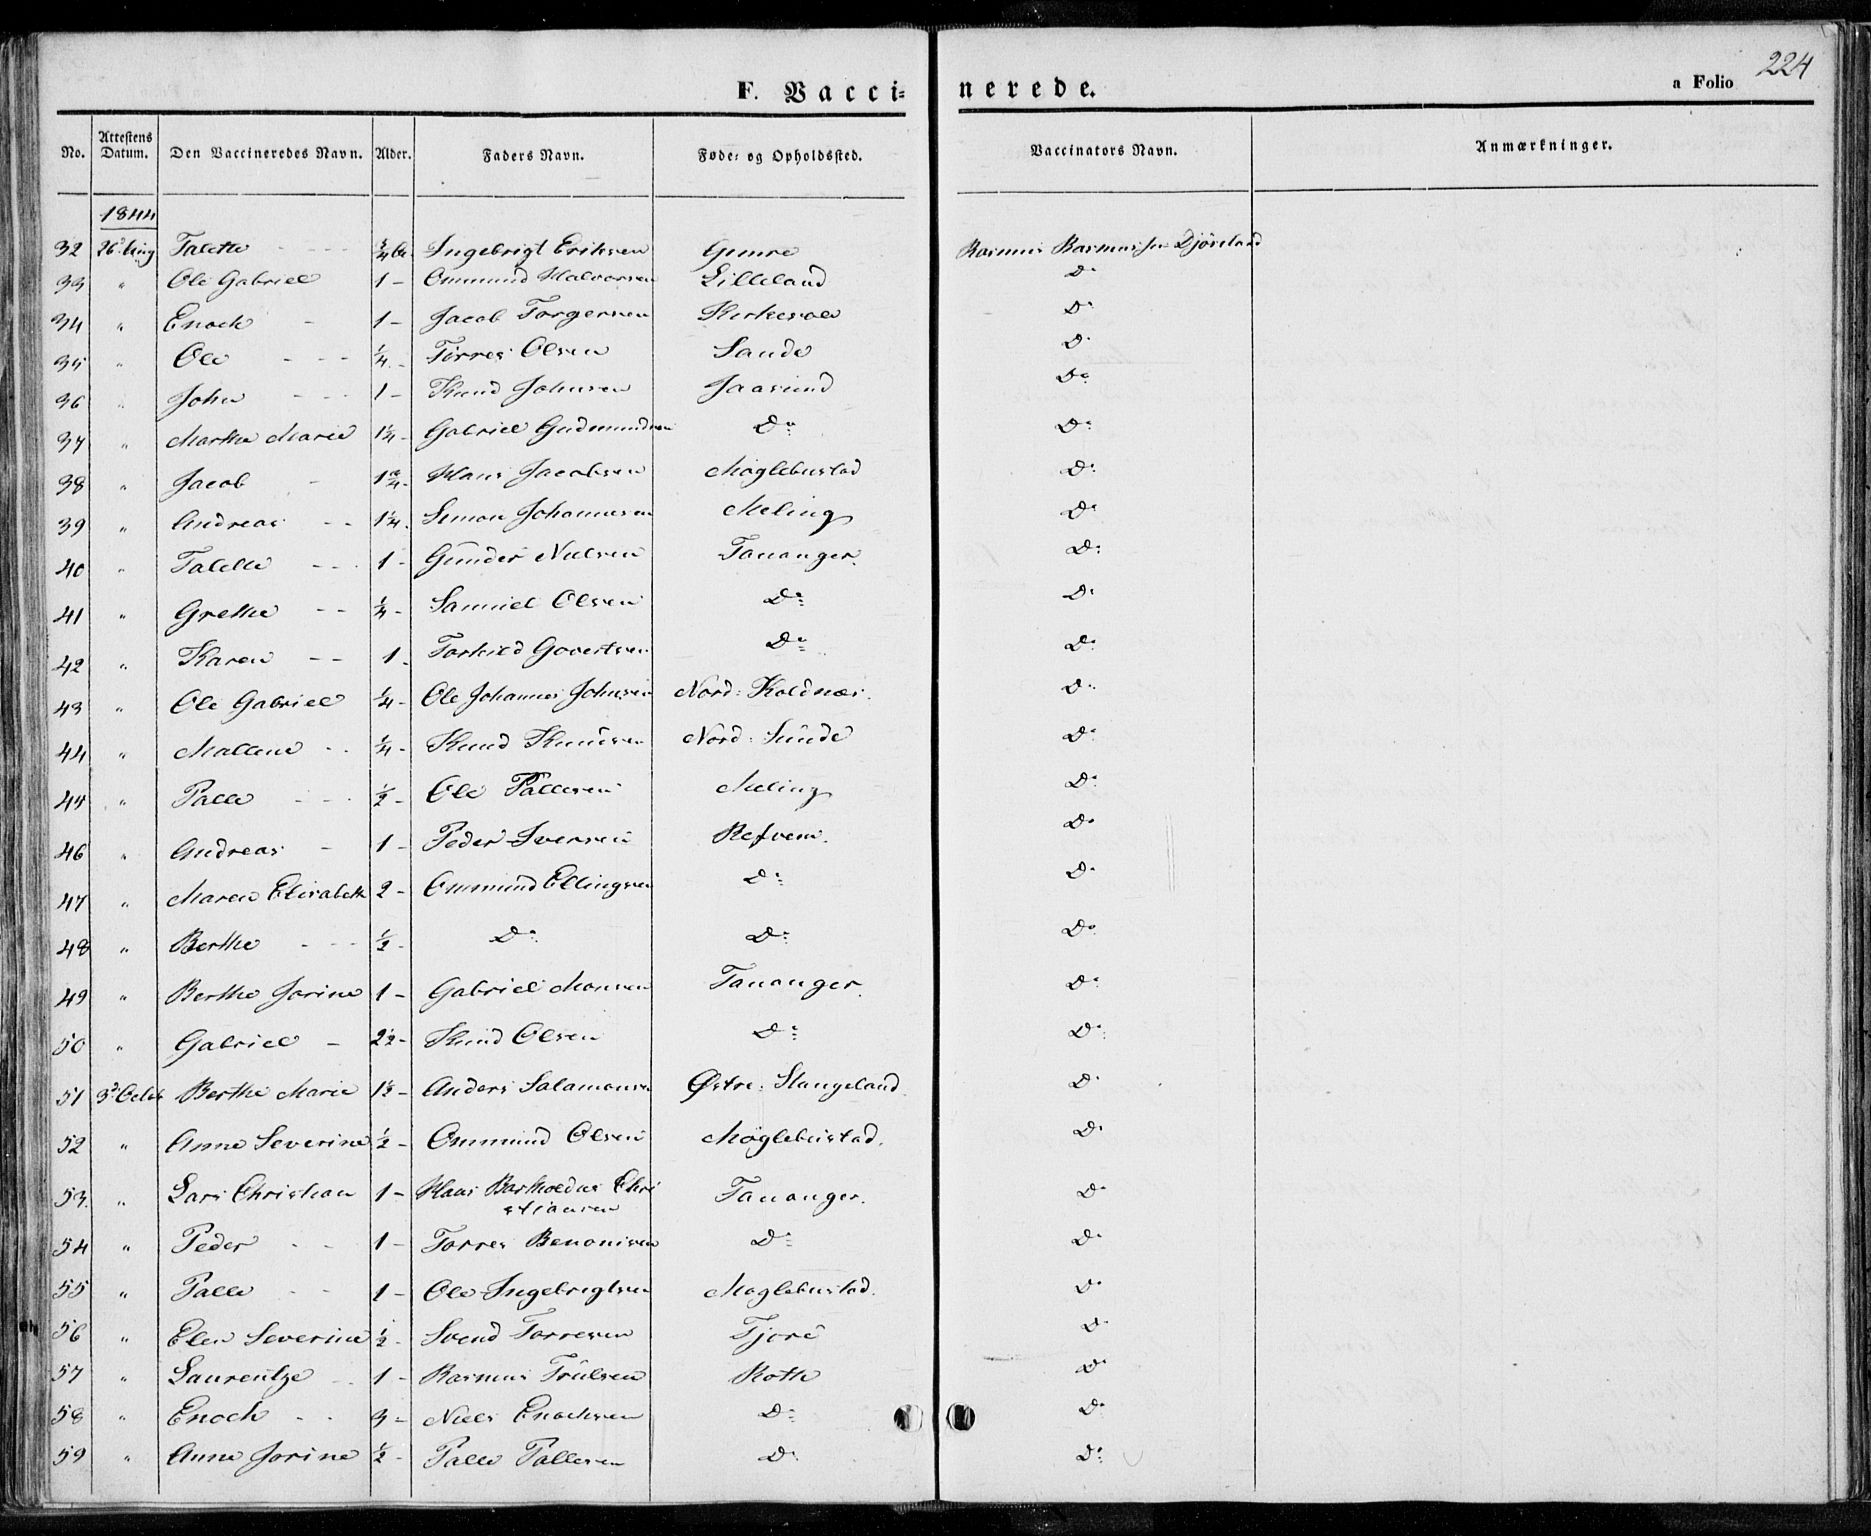 224
F. Vacci= nerede. a Folio
No. Attestens Datum. Den Vaccineredes Navn. Alder. Faders Navn. Føde= og Opholdssted. Vaccinators Navn. Anmærkninger.
1844
32 26 Aug Talette - - - 3/4 Ingebrigt Eriksen Gimre Rasmus Rasmussen Djösland
33 " Ole Gabriel 1 - Ommund Halvorsen Lilleland Do
34 " Enoch - 1 - Jacob Torgersen Kirkesole Do
35 " Ole - - - 1/4 - Törres Olsen Sande Do
36 " John - - - 1 - Knud Johnsen Jaasund Do
37 " Marthe Marie 1 1/4 - Gabriel Gudmundsen Do Do
38 " Jacob - 1 3/4 - Hans Jacobsen Møglebustad Do
39 " Andreas - - 1 1/4 - Simon Johannesen Meling Do
40 " Talette - - - 1 - Gunder Nielsen Tananger. Do
41 " Grethe - - 1/4 - Samuel Olsen Do Do
42 " Karen - - 1 - Torkild Govertsen Do Do
43 " Ole Gabriel 1/4 - Ole Johannes Johnsen Nord: Koldnæs. Do
44 " Mallene - - 1/4 - Knud Knudsen Nord: Sunde Do
45 " Palle - - - 1/2 - Ole Pallesen Meling Do
46 " Andreas - 1 - Peder Iversen Refvem. Do
47 " Maren Elisabeth 2 - Ommund Ellingsen Do Do
48 " Berthe - - - 1/2 - Do Do Do
49 " Berthe Jorine 1 - Gabriel Monsen Tananger. Do
50 " Gabriel - 2 1/2 - Knud Olsen Do Do
51 3 Octob Berthe Marie 1 1/2 - Anders Salamonsen Østre: Stangeland. Do
52 " Anne Severine 1/2 - Ommund Olsen Møglebustad. Do
53. " Lars Christian 1 - Hans Bartholdus Chri Tananger. Do
stiansen
54 " Peder - - 1 - Torres Benonisen Do Do
55 " Palle - - 1 - Ole Ingebrigtsen Møglebustad. Do
56 " Elen Severine 1/2 - Svend Torresen Tjore Do
57 " Laurentze - 1 - Rasmus Trulsen Roth Do
58 " Enoch - - 3 - Niels Enochsen Do Do
59 " Anne Jorine 1/2 - Palle Pallesen Do Do